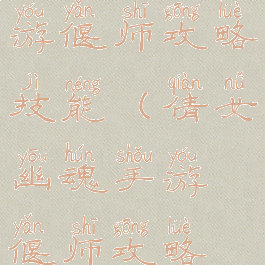 yóu yǎn shī gōng lüè
游偃师攻略
jì néng qiàn nǚ
技能（倩女
yōu hún shǒu yóu
幽魂手游
yǎn shī gōng lüè
偃师攻略